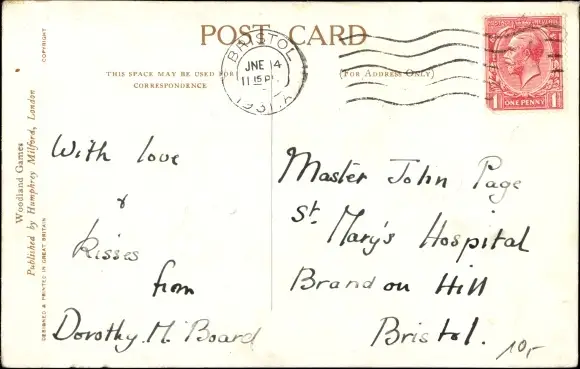 POST CARD
THIS SPACE MAY BE USED FOR
CORRESPONDENCE
(FOR ADDRESS ONLY)
BRISTOL
JNE 14
11 15 P
1931
1 ONE PENNY 1
COPYRIGHT
Woodland Games
Published by Humphrey Milford, London
DESIGNED & PRINTED IN GREAT BRITAIN
With love
&
Kisses
from
Dorothy. M. Board
Master John Page
St. Mary's Hospital
Brandon Hill
Bristol.
10,-